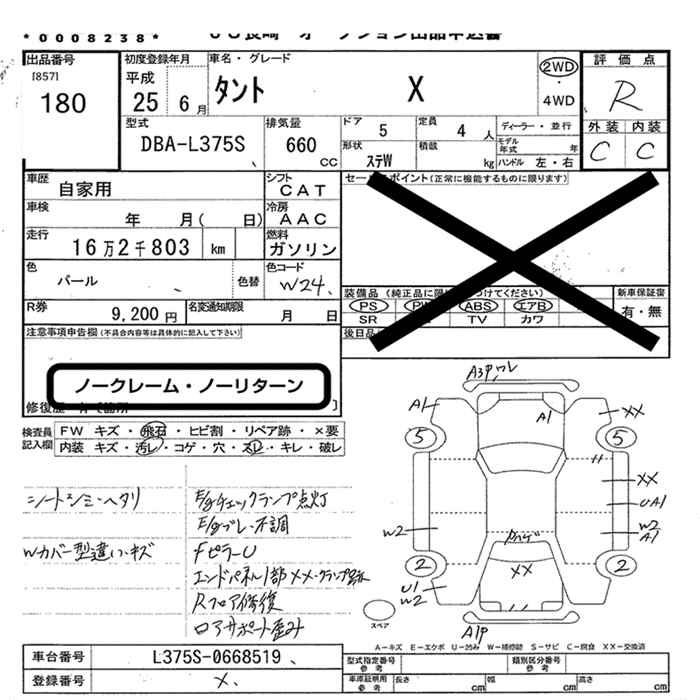 *0008238*
出品番号
[857]
180
初度登録年月
平成
25 6月
車名・グレード
タント X
2WD
・
4WD
評価点
R
型式
DBA-L375S
排気量
660
CC
ドア
5
定員
4 人
ディーラー・並行
形状
ステW
積載
kg
モデル年式 年
ハンドル 左・右
外装 内装
C C
車歴
自家用
シフト
CAT
車検
年 月( 日)
冷房
AAC
走行
16万2千803 km
燃料
ガソリン
色
パール
色替
色コード
W24
R券
9,200円
名変通知期限
月 日
セールスポイント(正常に機能するものに限ります)
装備品
PS PW ABS エアB
SR TV カワ
新車保証書
有・無
後日品
注意事項申告欄(不具合内容等は具体的に記入して下さい)
ノークレーム・ノーリターン
検査員記入欄
FW キズ・飛石・ヒビ割・リペア跡・×要
内装 キズ・汚レ・コゲ・穴・スレ・キレ・破レ
シートシミ・ヘタリ
Wカバー型違い・キズ
E/gチェックランプ点灯
E/gブレ・不調
FピラーU
エンドパネル1部XX・クランプ跡
Rフロア修復
ロアサポート歪み
A1
A1
XX
5
5
XX
UA1
W2
W2
A1
XX
2
2
U1
W2
A1P
スペア
A=キズ E=エクボ U=凹み W=補修跡 S=サビ C=腐食 XX=交換済
車台番号
L375S-0668519
登録番号
×
型式指定番号
参考
類別区分番号
参考
車庫証明用
参考
長さ cm
幅 cm
高さ cm